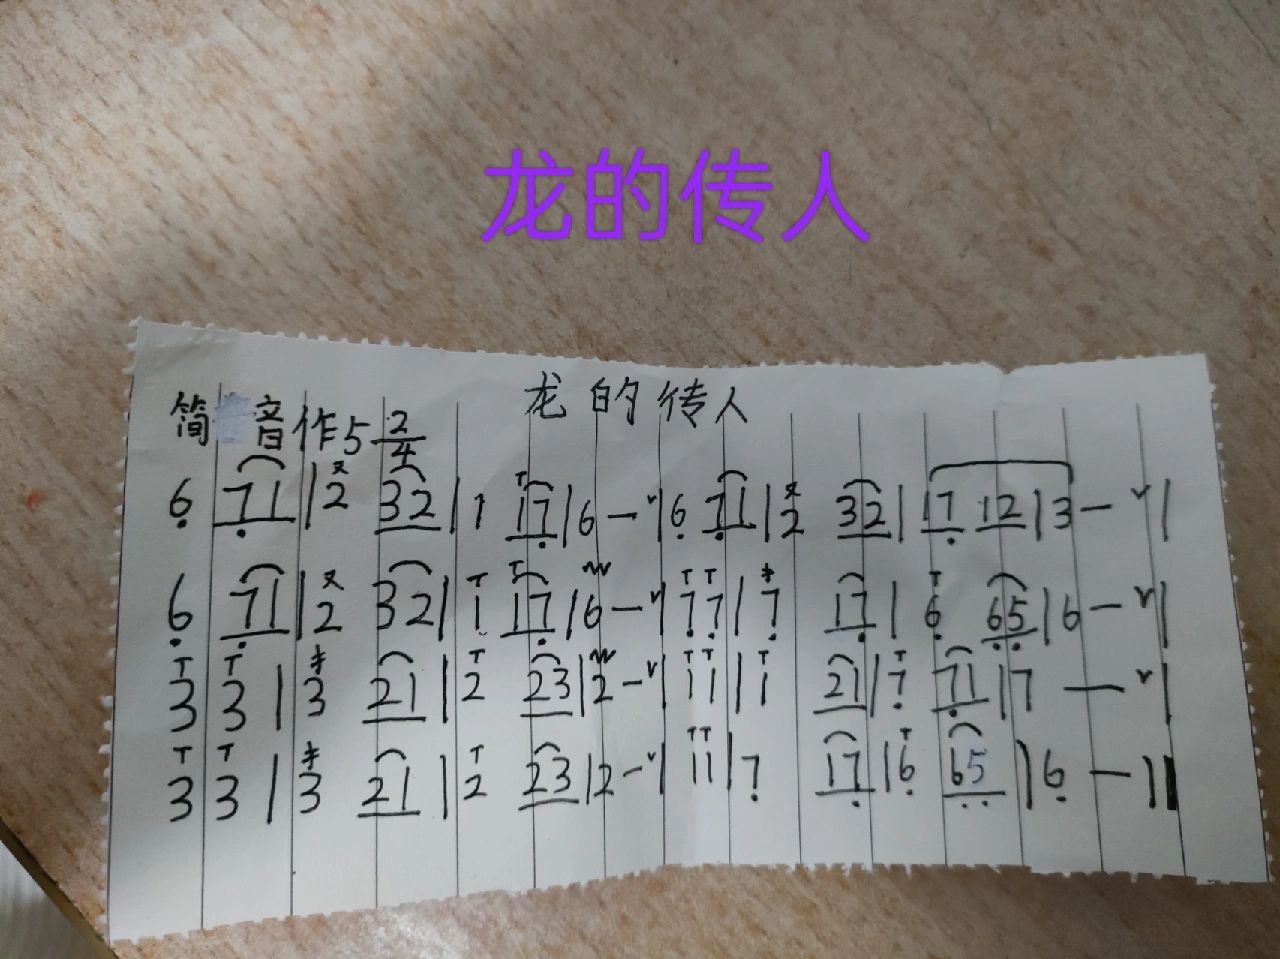 龙的传人
龙的传人
简音作5 2/4
6 71 | 2 32 | 1 17 | 6 — ∨ | 6 71 | 2 32 | 17 12 | 3 — ∨ |
6 71 | 2 32 | 1 17 | 6 — ∨ | 7 7 | 7 17 | 6 65 | 6 — ∨ |
3 3 | 3 21 | 2 23 | 2 — ∨ | 1 1 | 1 21 | 7 71 | 7 — ∨ |
3 3 | 3 21 | 2 23 | 2 — ∨ | 1 1 | 7 17 | 6 65 | 6 — ||